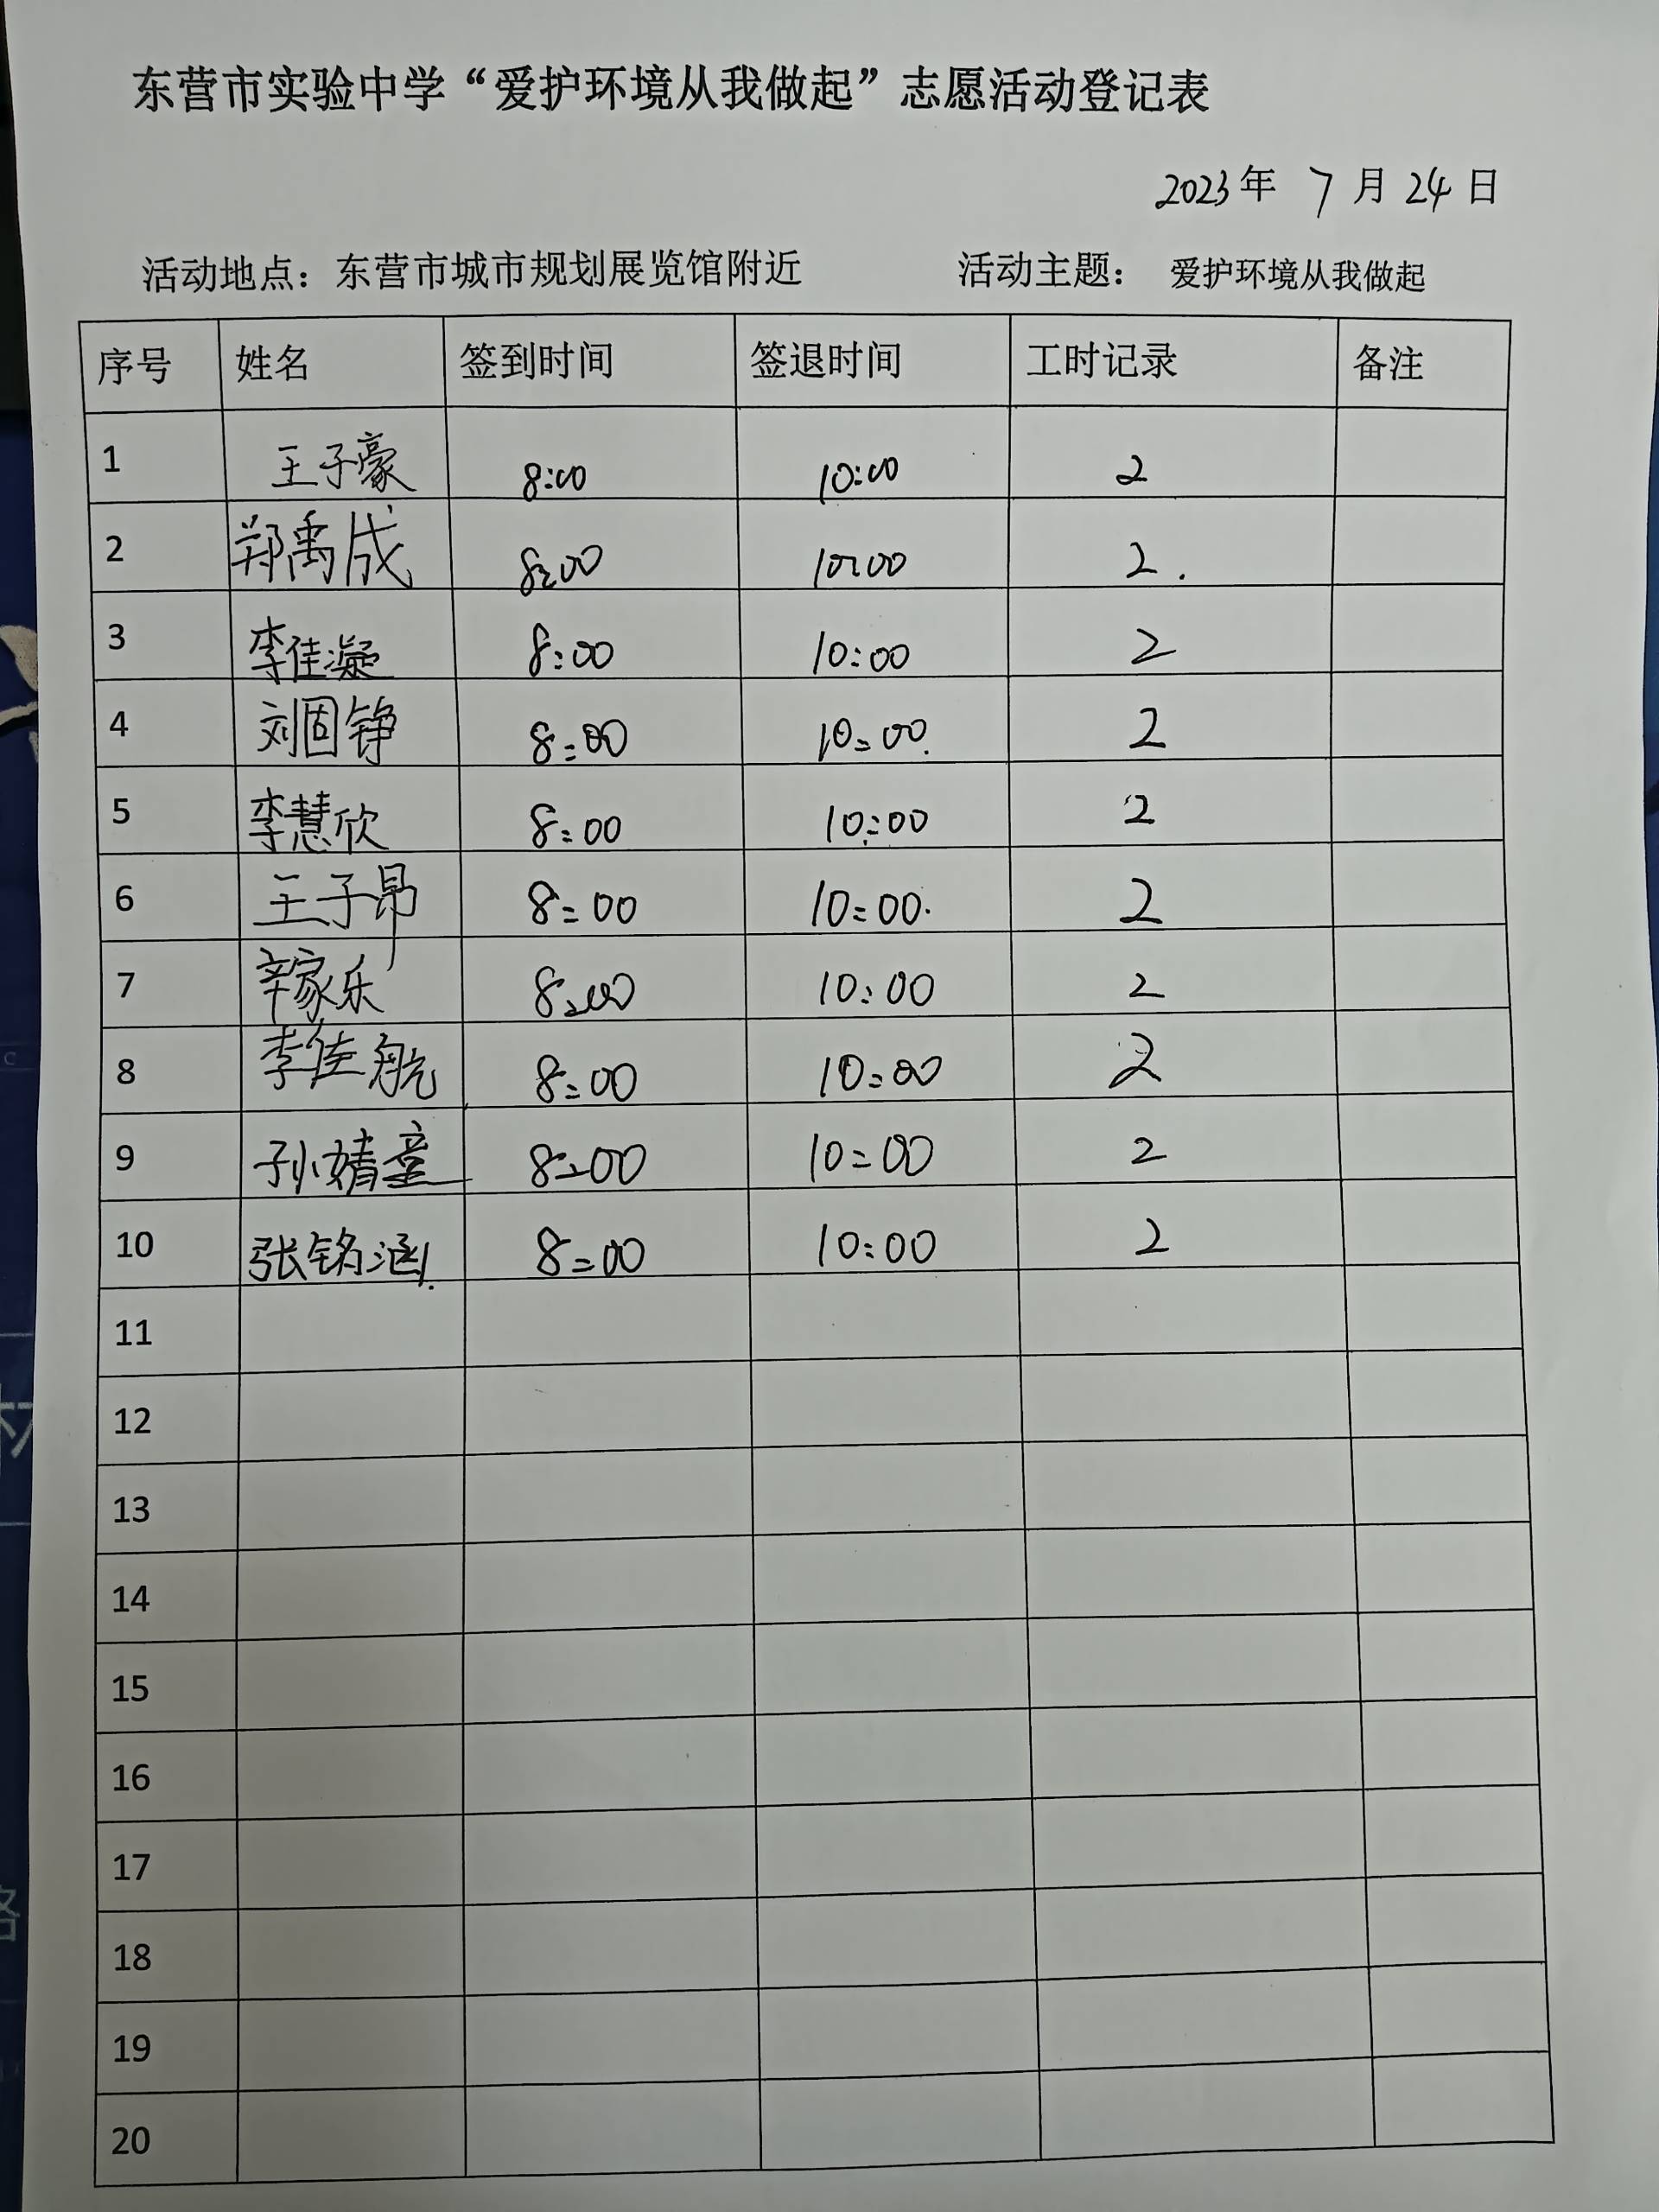 东营市实验中学“爱护环境从我做起”志愿活动登记表
2023年 7 月 24 日
活动地点：东营市城市规划展览馆附近 活动主题： 爱护环境从我做起
序号 姓名 签到时间 签退时间 工时记录 备注
1 王子豪 8:00 10:00 2
2 郑禹成 8:00 10:00 2.
3 李佳凝 8:00 10:00 2
4 刘固铮 8:00 10:00. 2
5 李慧欣 8:00 10:00 2
6 王子昂 8:00 10:00. 2
7 辛家乐 8:00 10:00 2
8 李佳航 8:00 10:00 2
9 孙婧童 8:00 10:00 2
10 张铭涵. 8:00 10:00 2
11
12
13
14
15
16
17
18
19
20